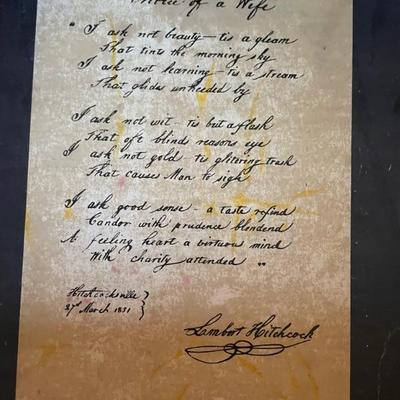 Choice of a Wife
" I ask not beauty – tis a gleam
That tints the morning sky
I ask not learning – tis a stream
That glides unheeded by
I ask not wit – tis but a flash
That oft blinds reasons eye
I ask not gold – tis glitering trash
That causes Man to sigh
I ask good sense – a taste refind
Candor with prudence blendend
A feeling heart a virtuous mind
With charity attended "
Hitchcocksville }
27th March 1831 }
Lambert Hitchcock